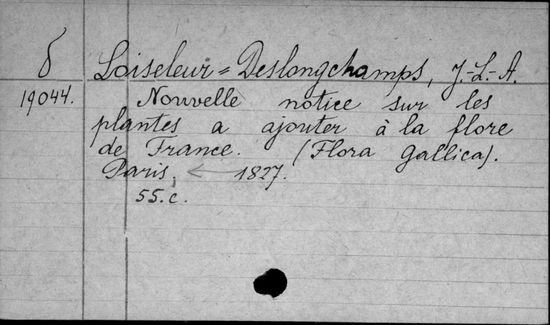 δ Loiseleur=Deslongchamps, J.-L.-A.
19044. Nouvelle notice sur les
plantes a ajouter à la flore
de France. (Flora gallica).
Paris, 1827.
55. c.